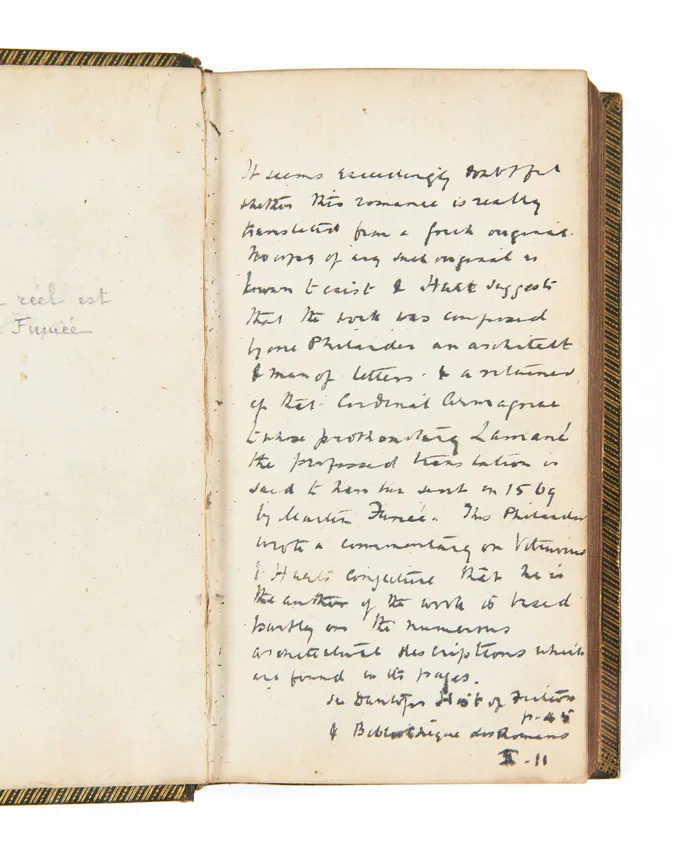 réel est
Fumée
It seems exceedingly doubtful
whether this romance is really
translated from a greek original.
No copy of any such original is
known to exist & Huet suggests
that the work was composed
by one Philander an architect
& man of letters & a retainer
of that Cardinal Armagnac
to whose prothonotary Lamané
the professed translation is
said to have been sent in 1569
by Martin Fumée. This Philander
wrote a commentary on Vitruvius
& Huet's conjecture that he is
the author of the work is based
partly on the numerous
architectural descriptions which
are found in its pages.
See Dunlop's Hist of Fiction
p. 45
& Bibliothèque des Romans
II - 11